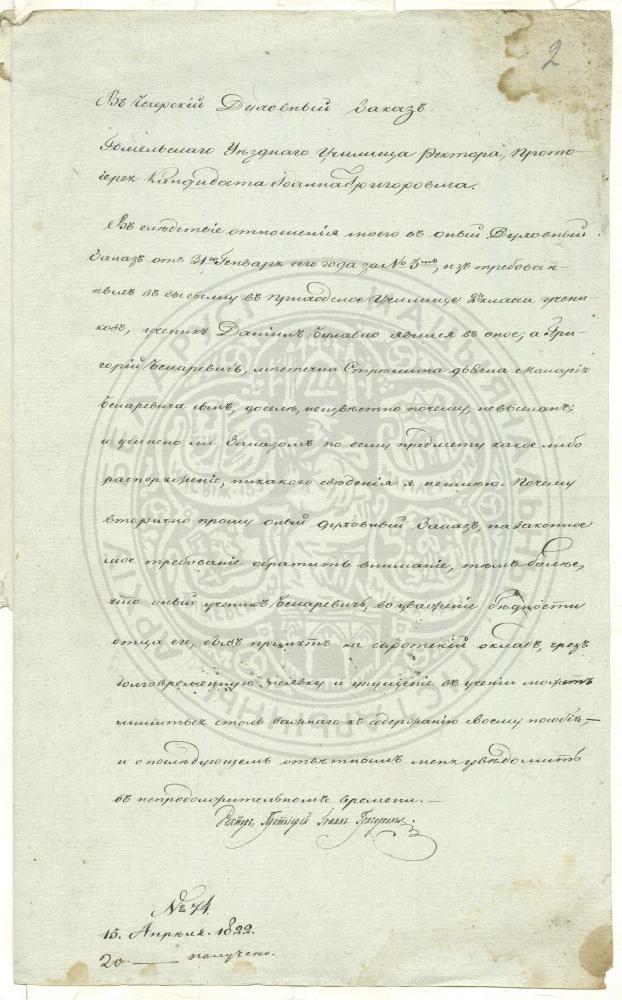 2
Въ Чечерскій Духовный Заказъ
Гомельскаго Уѣзднаго Училища Ректора, Прото-
іерея Кандидата Іоанна Григоровича.
Въ слѣдствіе отношенія моего въ оный Духовный
Заказъ отъ 31го Генваря сего года за № 5мъ, изъ требован-
ныхъ въ высылку въ приходское Училище 2го класса учени-
ковъ, ученикъ Даніилъ Булавко явился въ оное; а Гри-
горій Бекаревичь, мѣстечка Стрешина дьячка Макарія
Бекаревича сынъ, доселѣ, неизвѣстно почему, невысланъ;
и учинено ли Заказомъ по сему предмету какое либо
распоряженіе, никакого свѣденія я неимѣю. Почему
вторично прошу оный духовный Заказъ, на законное
мое требованіе обратить вниманіе, тѣмъ болѣе,
что оный ученикъ Бекаревичь, во уваженіе бѣдности
отца его, бывъ принятъ на сиротскій окладъ, чрезъ
долговременную неявку и упущеніе въ ученіи можетъ
лишиться столь важнаго къ содержанію своему пособія,—
и о послѣдующемъ отвѣтнымъ меня увѣдомить
въ непродолжительномъ времени.—
Ректоръ, Протоіерей Іоаннъ Григоровичь.
№ 74.
15. Апрѣля. 1822.
20 — получено.